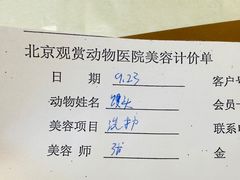 北京观赏动物医院美容计价单
日 期 9.23 客户号
动物姓名 馒头 会员
美容项目 洗护 联系
美容师 张 金